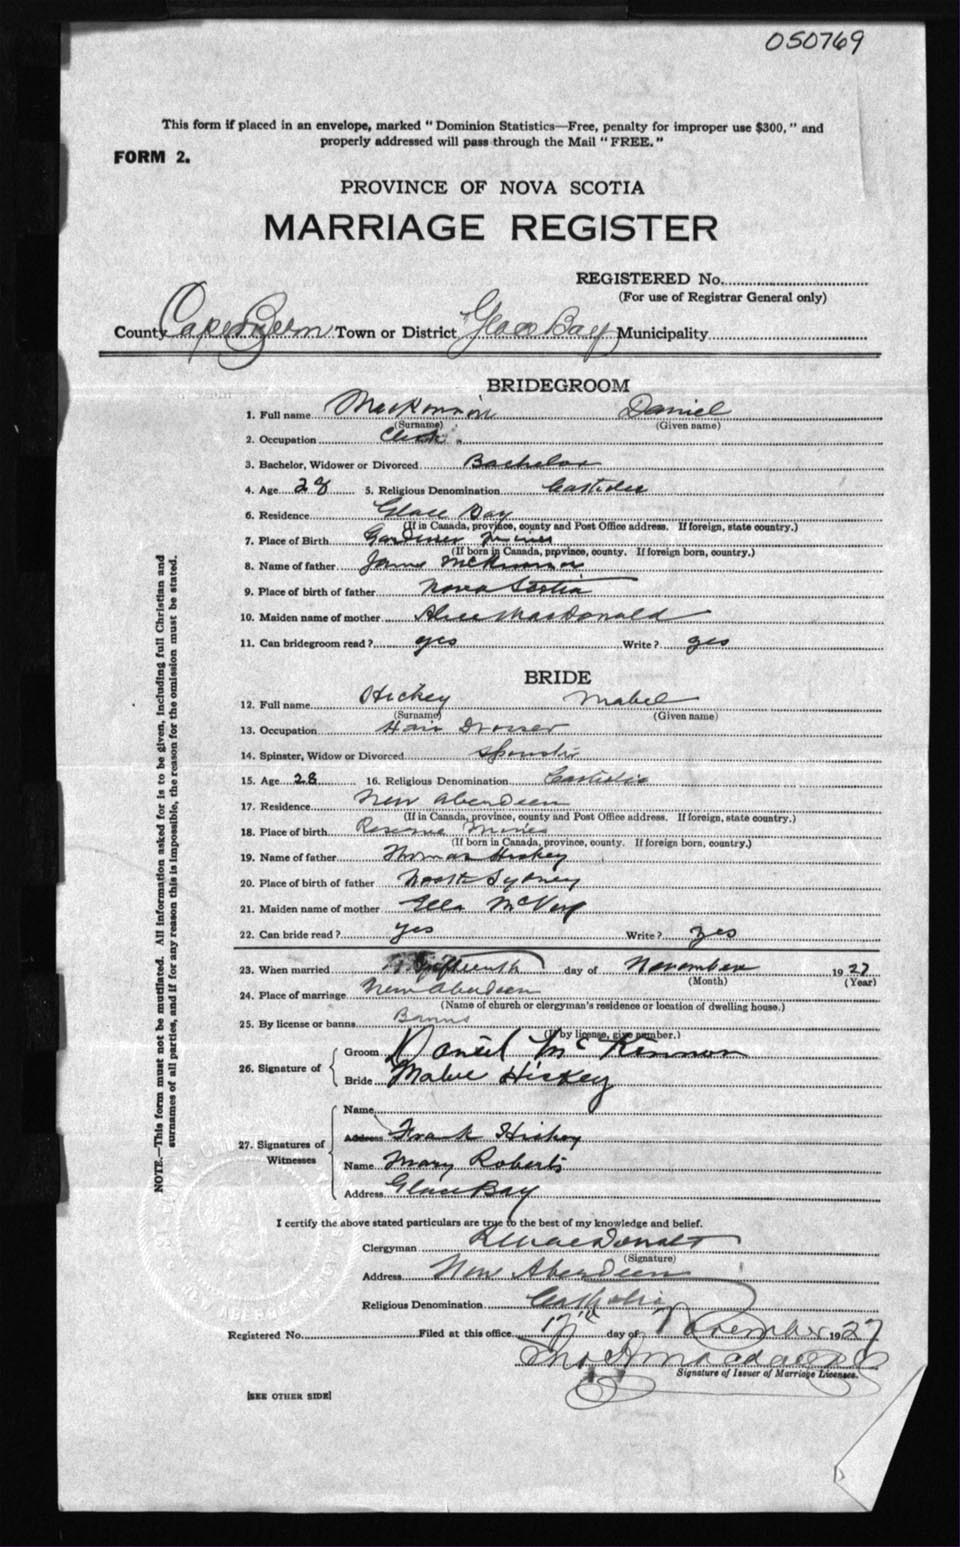 050769
This form if placed in an envelope, marked " Dominion Statistics—Free, penalty for improper use $300, " and
properly addressed will pass through the Mail " FREE. "
FORM 2.
PROVINCE OF NOVA SCOTIA
MARRIAGE REGISTER
REGISTERED No.
(For use of Registrar General only)
County Cape Breton Town or District Glace Bay Municipality
BRIDEGROOM
1. Full name MacKinnon Daniel
(Surname) (Given name)
2. Occupation Clerk
3. Bachelor, Widower or Divorced Bachelor
4. Age 28 5. Religious Denomination Catholic
6. Residence Glace Bay
(If in Canada, province, county and Post Office address. If foreign, state country.)
7. Place of Birth Gardiner Mines
(If born in Canada, prpvince, county. If foreign born, country.)
8. Name of father James McKinnon
9. Place of birth of father Nova Scotia
10. Maiden name of mother Alice MacDonald
11. Can bridegroom read ? yes Write ? yes
BRIDE
12. Full name Hickey Mabel
(Surname) (Given name)
13. Occupation Hair Dresser
14. Spinster, Widow or Divorced Spinster
15. Age 28 16. Religious Denomination Catholic
17. Residence New Aberdeen
(If in Canada, province, county and Post Office address. If foreign, state country.)
18. Place of birth Reserve Mines
(If born in Canada, province, county. If foreign born, country.)
19. Name of father Thomas Hickey
20. Place of birth of father North Sydney
21. Maiden name of mother Ella McVey
22. Can bride read ? yes Write ? yes
23. When married fifteenth day of November 1927
(Month) (Year)
24. Place of marriage New Aberdeen
(Name of church or clergyman's residence or location of dwelling house.)
25. By license or banns Banns
(If by license, give number.)
26. Signature of Groom Daniel McKinnon
Bride Mabel Hickey
27. Signatures of Witnesses
Name
Address Frank Hickey
Name Mary Roberts
Address Glace Bay
I certify the above stated particulars are true to the best of my knowledge and belief.
Clergyman MacDonald
(Signature)
Address New Aberdeen
Religious Denomination Catholic
Registered No. Filed at this office 17th day of November 1927
Signature of Issuer of Marriage Licenses.
[SEE OTHER SIDE]
NOTE.—This form must not be mutilated. All information asked for is to be given, including full Christian and
surnames of all parties, and if for any reason this is impossible, the reason for the omission must be stated.